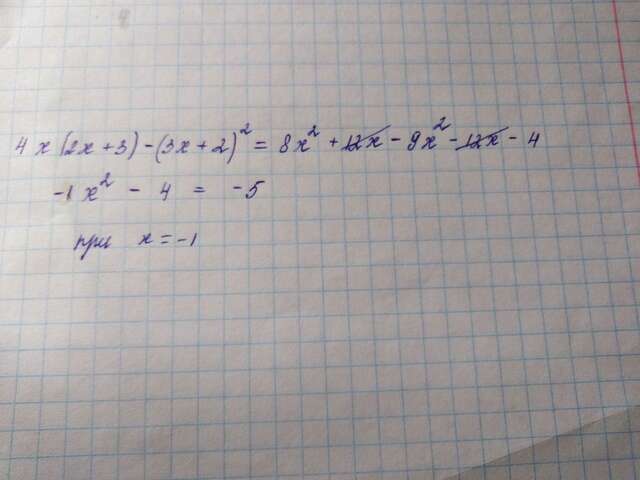 4x(2x+3)-(3x+2)² = 8x² + 12x - 9x² - 12x - 4
-1x² - 4 = -5
при x = -1